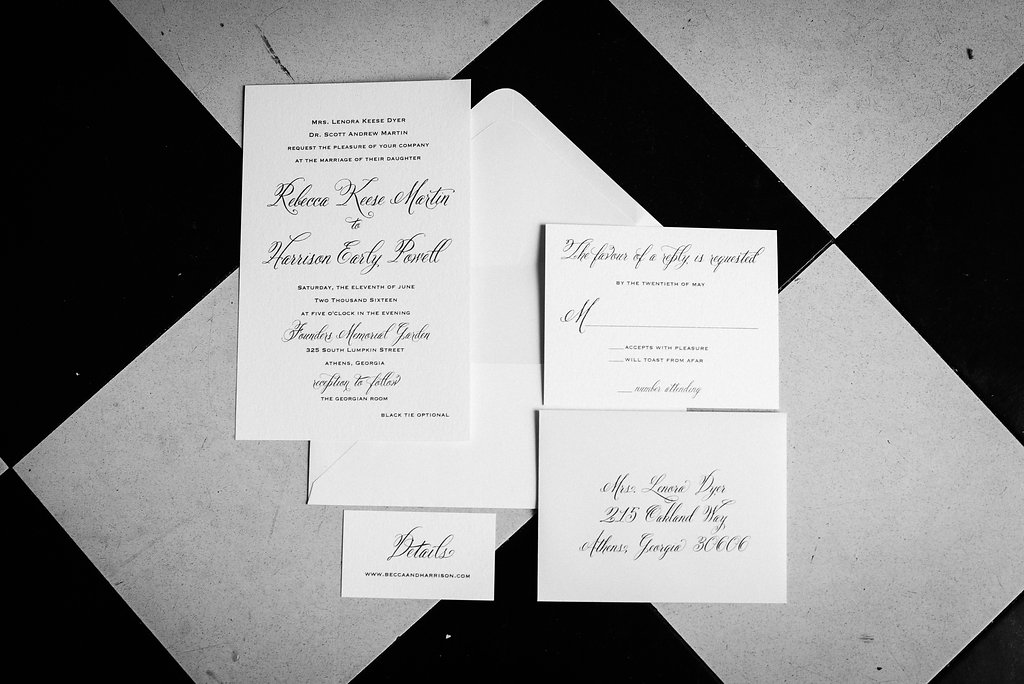 Mrs. Lenora Keese Dyer
Dr. Scott Andrew Martin
request the pleasure of your company
at the marriage of their daughter
Rebecca Keese Martin
to
Harrison Early Powell
Saturday, the eleventh of June
Two Thousand Sixteen
at five o'clock in the evening
Founders Memorial Garden
325 South Lumpkin Street
Athens, Georgia
reception to follow
The Georgian Room
Black tie optional
The favour of a reply is requested
by the twentieth of May
M
accepts with pleasure
will toast from afar
number attending
Mrs. Lenora Dyer
215 Oakland Way
Athens, Georgia 30606
Details
www.beccaandharrison.com